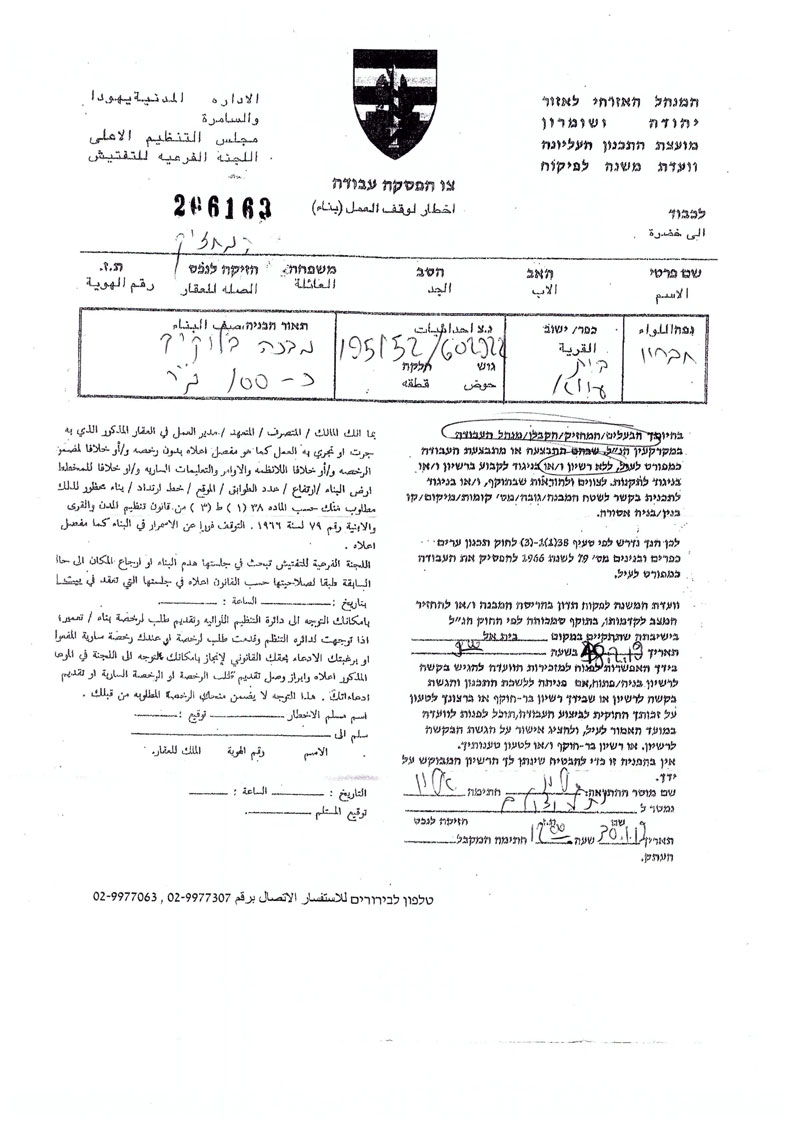 המנהל האזרחי לאזור
יהודה ושומרון
מועצת התכנון העליונה
וועדת משנה לפיקוח
الاداره المدنية يهودا
والسامرة
مجلس التنظيم الاعلى
اللجنة الفرعيه للتفتيش
צו הפסקת עבודה
اخطار لوقف العمل (بناء)
206163
לכבוד
الى حضرة
המחזיק
שם פרטי האב הסב משפחה חזיקה לנכס ת.ז.
الاسم الاب الجد العائلة الصله للعقار رقم الهوية
נפה اللواء
חברון
כפר/ישוב
القرية
בית
עווא
נ.צ احداثيات
195152/602922
גוש חלקה
حوض قطعه
תאור הבניה وصف البناء
מבנה בלוקים
כ-100 מ"ר
בהיותך הבעלים/המחזיק/הקבלן/מנהל העבודה
במקרקעין הנ"ל, שבהם התבצעה או מתבצעת העבודה
כמפורט לעיל, ללא רשיון ו/או בניגוד לקבוע ברשיון ו/או
בניגוד לתקנות, לצווים ולהוראות שבתוקף, ו/או בניגוד
לתכנית בקשר לשטח המבנה/גובה/מס' קומות/מיקום/קו
בנין/בניה אסורה.
לכן הנך נדרש לפי סעיף 38(1)-(3) לחוק תכנון ערים
כפרים ובנינים מס' 79 לשנת 1966 להפסיק את העבודה
כמפורט לעיל.
וועדת המשנה לפקוח תדון בהריסת המבנה ו/או להחזיר
המצב לקדמותו, בתוקף סמכותה לפי החוק הנ"ל
בישיבתה שתתקיים במקום בית אל
תאריך בשעה
בידך האפשרות לפנות למזכירות הוועדה להגיש בקשה
לרשיון בניה/פתוח, אם פניתה ללשכת התכנון והגשת
בקשה לרשיון או שבידך רשיון בר-תוקף או ברצונך לטעון
על זכותך החוקית לביצוע העבודה, תוכל לפנות לוועדה
במועד האמור לעיל, ולהציג אישור על הגשת הבקשה
לרשיון, או רשיון בר-תוקף ו/או לטעון טענותיך.
אין בהפניה זו כדי להבטיח שינתן לך הרשיון המבוקש על
ידך.
שם מוסר ההתראה: חתימה
נמסר ל
חזיקה לנכס
תאריך 30.1.19 שעה חתימה המקבל
העתק.
بما انك المالك / المتصرف / المتعهد / مدير العمل في العقار المذكور الذي به
جرت او تجري به العمل كما هو مفصل اعلاه بدون رخصه و/أو خلافا لمضمون
الرخصه و/أو خلافا للانظمه والاوامر والتعليمات الساريه و/او خلافا للمخطط
ارض البناء /ارتفاع/ عدد الطوابق/ الموقع / خط ارتداد / بناء محظور لذلك
مطلوب منك حسب الماده ٣٨ (١) ط (٣) من قانون تنظيم المدن والقرى
والابنية رقم ٧٩ لسنة ١٩٦٦. التوقف فورا عن الاستمرار في البناء كما مفصل
اعلاه .
اللجنة الفرعية للتفتيش تبحث في جلستها هدم البناء او ارجاع المكان الى
السابقة طبقا لصلاحيتها حسب القانون اعلاه في جلستها التي تعقد في
بتاريخ : الساعة :
بامكانك التوجه الى دائرة التنظيم وتقديم طلب لرخصة بناء / تعمير؛
اذا توجهت لدائره التنظيم وقدمت طلب لرخصة او عندك رخصة سارية المفعول
او برغبتك الادعاء بحقك القانوني لإنجاز بامكانك التوجه الى اللجنة في
المذكور اعلاه وابراز وصل تقديم طلب الرخصة او الرخصة السارية او تقديم
ادعاءاتك . هذا التوجه لا يضمن منحك الرخصة المطلوبه من قبلك .
اسم مسلم الاخطار توقيع :
سلم الى
الاسم رقم الهوية الملك للعقار.
التاريخ : الساعة :
توقيع المستلم
טלפון לבירורים للاستفسار الاتصال برقم 02-9977307 , 02-9977063